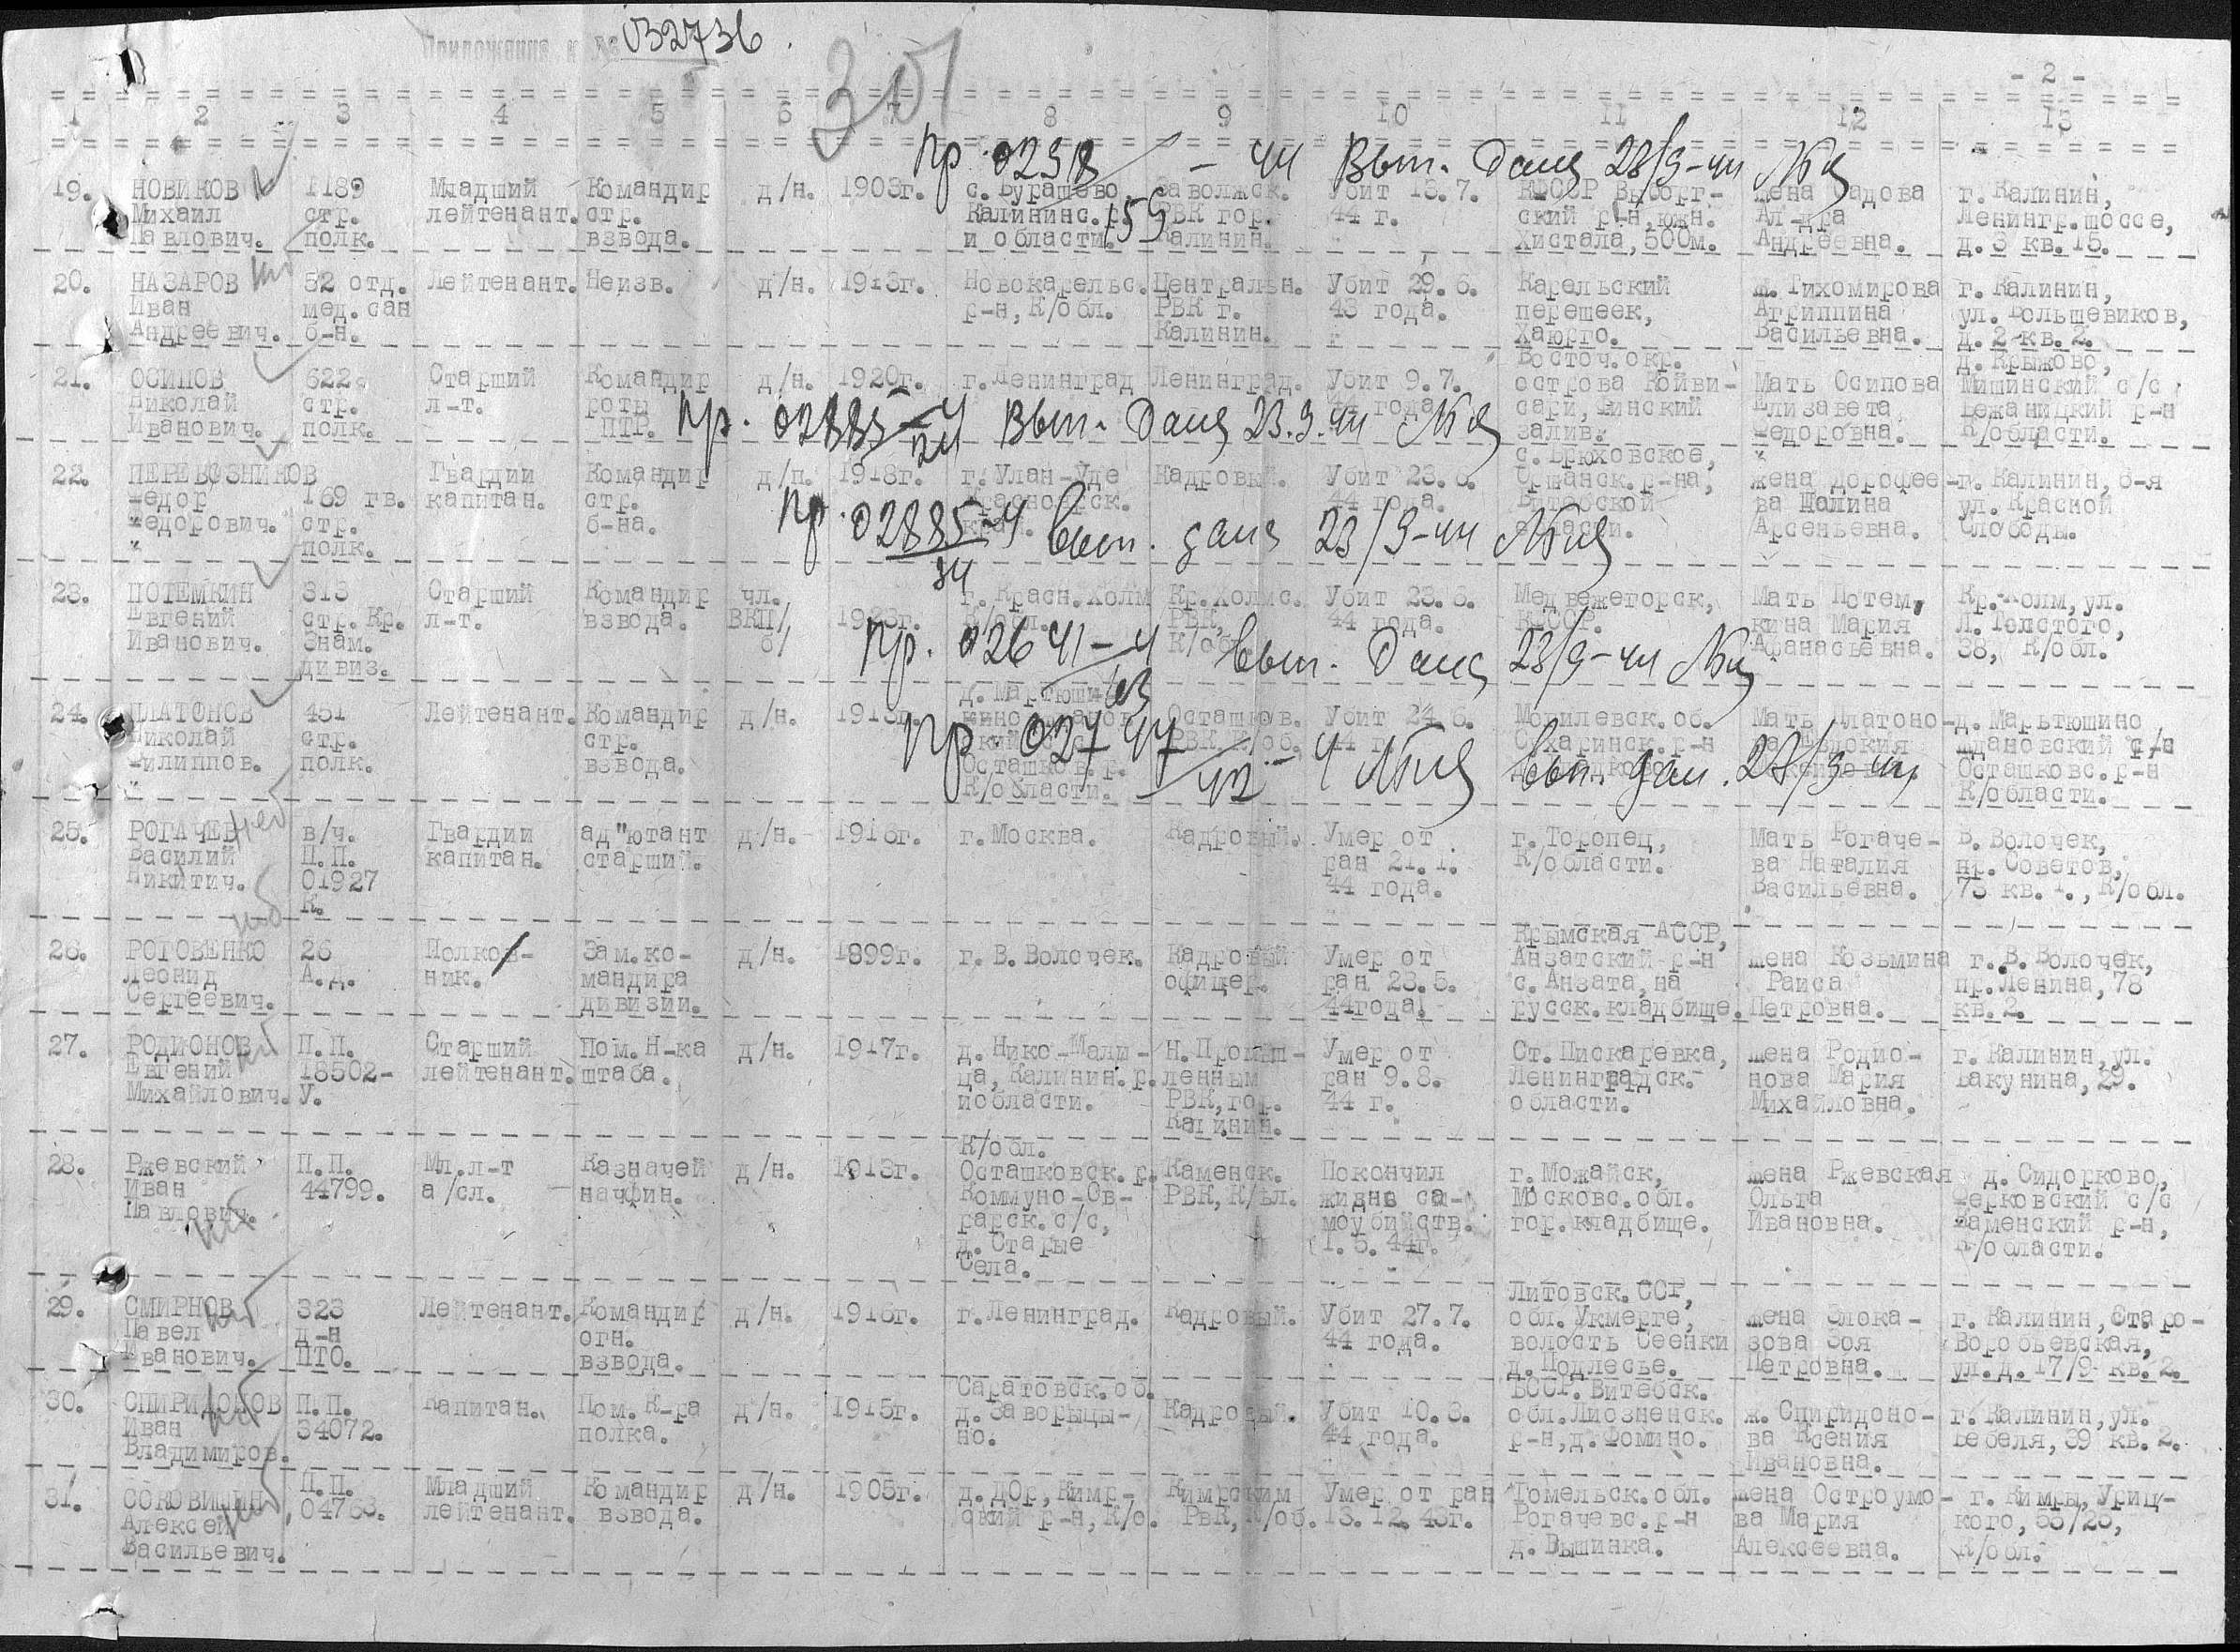 Приложение к № 032736.
301
- 2 -
1 2 3 4 5 6 7 8 9 10 11 12 13
Пр. 02 - 44 Вып. Дана 28/9-44
19. НОВИКОВ 1189 Младший Командир д/н. 1903г. с. Бурашево, Заволжск. Убит 15.7. КФССР Выборг- жена Садова г. Калинин,
Михаил стр. лейтенант. стр. Калининс. р. РВК гор. 44 г. ский р-н, южн. Ал-дра Ленингр. шоссе,
Павлович. полк. взвода. и области. Калинин. Хистала, 500м. Андреевна. д. 3 кв. 15.
159
20. НАЗАРОВ 52 отд. Лейтенант. Неизв. д/н. 1913г. Новокарельс. Центральн. Убит 29.6. Карельский ж. Тихомирова г. Калинин,
Иван мед. сан р-н, К/обл. РВК г. 43 года. перешеек, Агриппина ул. Большевиков,
Андреевич. б-н. Калинин. Хаюрго. Васильевна. д. 2 кв. 2.
Восточ. окр. д. Крыжово,
21. ОСИПОВ 622 Старший Командир д/н. 1920г. г. Ленинград Ленинград. Убит 9.7. острова Койви- Мать Осипова Мишинский с/с
Николай стр. л-т. роты года сари, Финский Елизавета Бежаницкий р-н
Иванович. полк. ПТР. залив. Федоровна. К/области.
Пр. 02885-4 Вып. Дана 23.9.44
24
с. Брюховское,
22. ПЕРЕВОЗНИКОВ Гвардии Командир д/п. 1918г. г. Улан-Уде Кадровый. Убит 23.6. Оршанск. р-на, жена Дорофее- г. Калинин, 6-я
Федор 169 гв. капитан. стр. Красноярск. 44 года. Витебской ва Шалина ул. Красной
Федорович. стр. б-на. области. Арсеньевна. Слободы.
полк.
Пр. 02885-4 вып. дана 23/9-44
34
23. ПОТЕМКИН 313 Старший Командир чл. г. Красн. Холм Кр. Холмс. Убит 23.6. Медвежегорск, Мать Потем, Кр.-Холм, ул.
Евгений стр. Кр. л-т. взвода. ВКП/ 1923г. К/обл. РВК, 44 года. КФССР. кина Мария Л. Толстого,
Иванович. Знам. б/ К/об Афанасьевна. 38, К/обл.
дивиз.
Пр. 02641-4 вып. Дана 23/9-44
д. Мартюши
24. ПЛАТОНОВ 451 Лейтенант. Командир д/н. 1913г. Осташков. Убит 24.6. Могилевск. об. Мать Платоно- д. Мартюшино
Николай стр. стр. РВК К/об. 44 г. р-н Ждановский с/с
Филиппов. полк. взвода. Осташков. р. Осташковс. р-н
К/области. К/области.
Пр. 02747 - 4 вып. дан. 28/9-44
42
25. РОГАЧЕВ в/ч. Гвардии ад"ютант д/н. 1918г. г. Москва. Кадровый. Умер от г. Торопец, Мать Рогаче- В. Волочек,
Василий П.П. капитан. старший. ран 21.1. К/области. ва Наталия пр. Советов,
Никитич. 01927 44 года. Васильевна. 73 кв. К/обл.
К.
Крымская АССР,
26. РОТОВЕНКО 26 Полков- Зам. ко- д/н. 1899г. г. В. Волочек. Кадровый Умер от Анзатский р-н жена Козьмина г. В. Волочек,
Леонид А.Д. ник. мандира офицер. ран 23.5. с. Анзата, на Раиса пр. Ленина, 78
Сергеевич. дивизии. 44года. русск. кладбище. Петровна. кв. 2.
27. РОДИОНОВ П.П. Старший Пом. Н-ка д/н. 1917г. д. Нико-Мали- Н. Промыш- Умер от Ст. Пискаревка, жена Родио- г. Калинин, ул.
Евгений 18502- лейтенант. штаба. ца, Калинин. р. ленным ран 9.8. Ленинградск. нова Мария Бакунина, 29.
Михайлович. У. иобласти. РВК, гор. 44 г. области. Михайловна.
Калинин.
К/обл.
28. Ржевский П.П. Мл. л-т Казначей д/н. 1913г. Осташковск. р. Каменск. Покончил г. Можайск, жена Ржевская д. Сидорково,
Иван 44799. а/сл. начфин. Коммуно-Св- РВК, К/ъл. жизнь са- Московс. обл. Ольга Берковский с/с
Павлович. рарск. с/с, моубийств. гор. кладбище. Ивановна. Каменский р-н,
д. Старые 1.5.44г. К/области.
Села.
Литовск. ССР,
29. СМИРНОВ 323 Лейтенант. Командир д/н. 1916г. г. Ленинград. Кадровый. Убит 27.7. обл. Укмерге, жена Злока- г. Калинин, Старо-
Павел д-н огн. 44 года. волость Сеенки зова Зоя Воробьевская,
Иванович. ПТО. взвода. д. Подлесье. Петровна. ул. д. 17/9 кв. 2.
Саратовск. об. БССР. Витебск.
30. СПИРИДОНОВ П.П. Капитан. Пом. К-ра д/н. 1915г. д. Заворыцы- Кадровый. Убит 10.3. обл. Лиозненск. ж. Спиридоно- г. Калинин, ул.
Иван 34072. полка. но. 44 года. р-н, д. Фомино. ва Ксения Бебеля, 39 кв. 2.
Владимиров. Ивановна.
31. СОКОВИШИН П.П. Младший Командир д/н. 1905г. д. Дор, Кимр- Кимрским Умер от ран Гомельск. обл. жена Остроумо- г. Кимры, Уриц-
Алексей 04763. лейтенант. взвода. ский р-н, К/о. РВК, К/об. 13.12.43г. Рогачевс. р-н ва Мария кого, 53/25,
Васильевич. д. Вышинка. Алексеевна. К/обл.